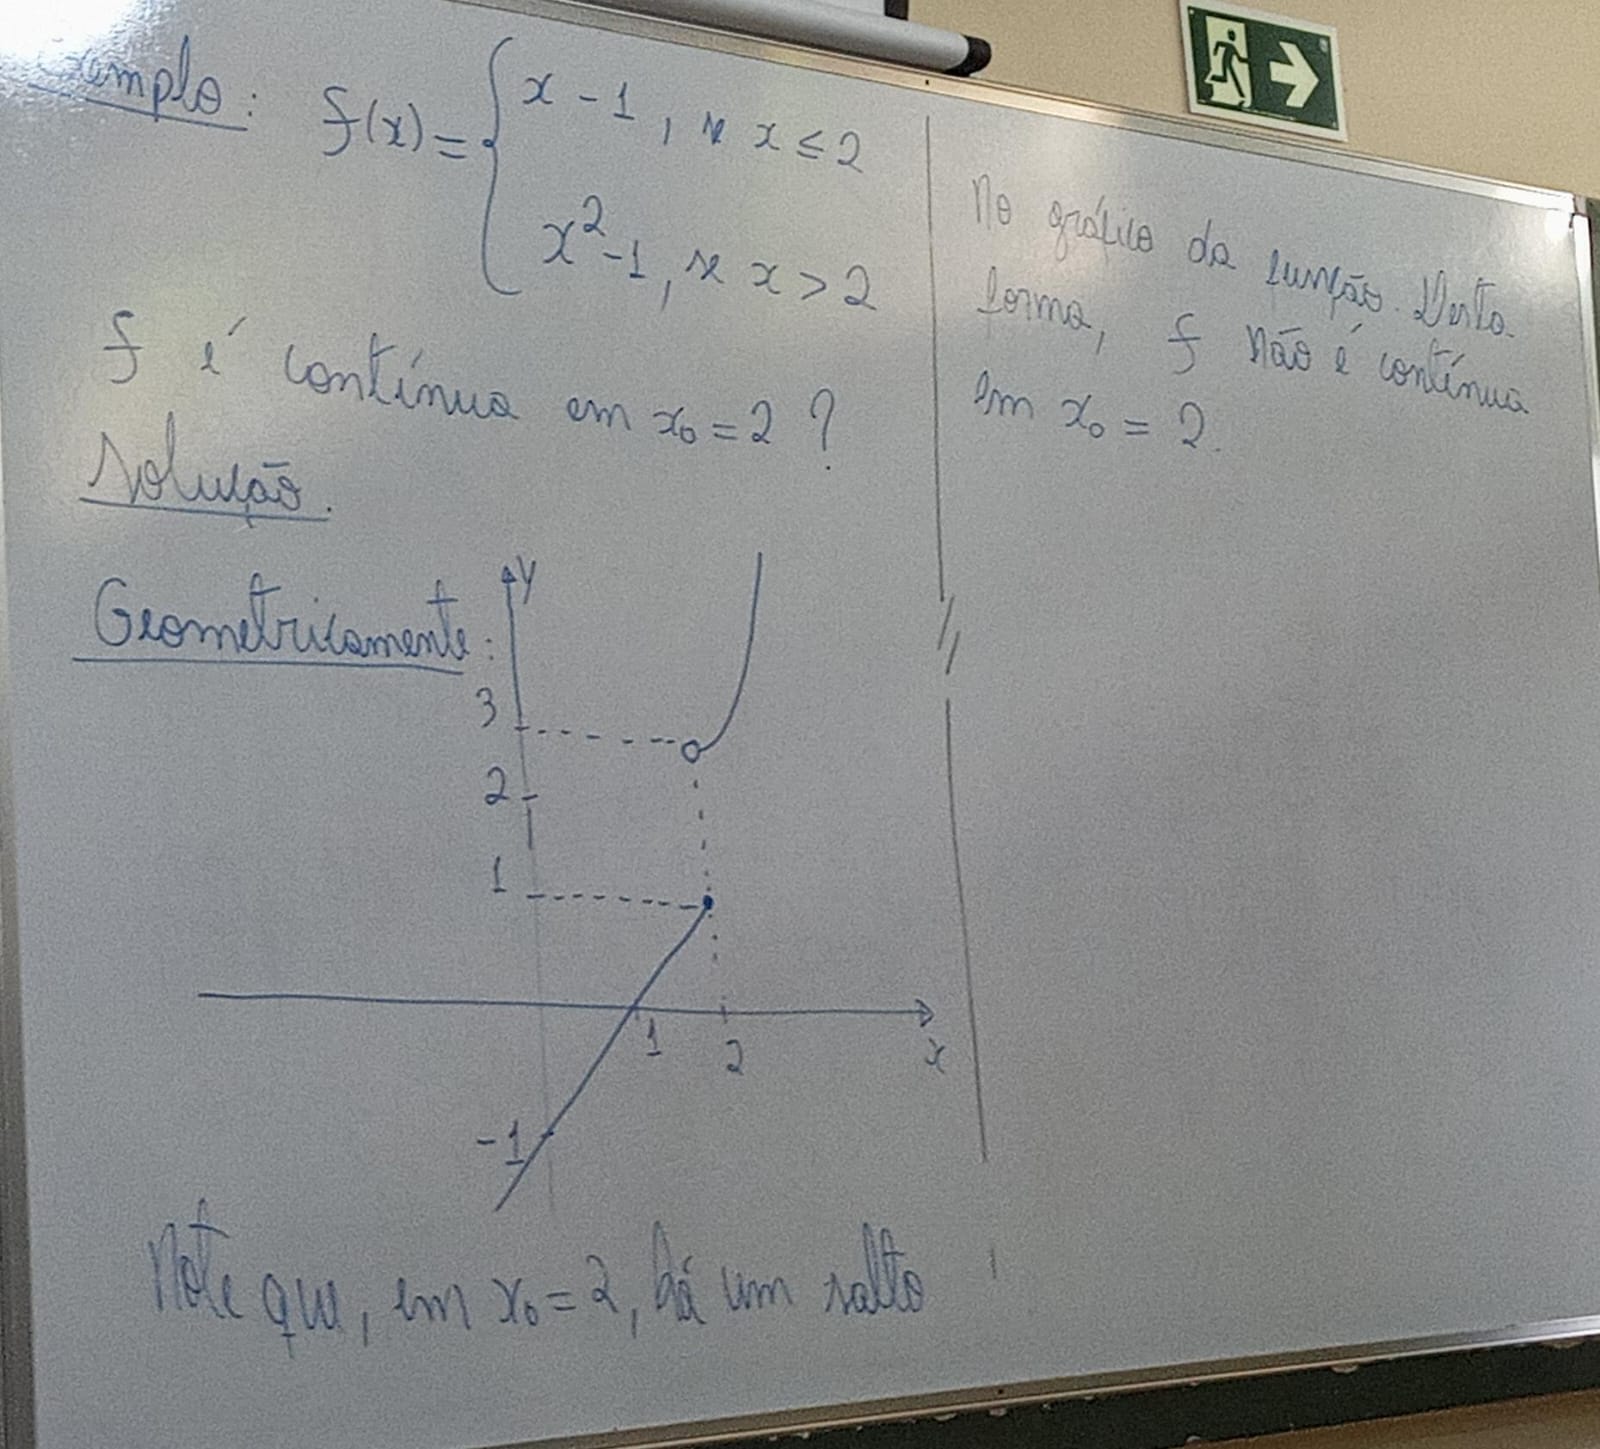 Exemplo: f(x) = { x - 1, se x ≤ 2
x² - 1, se x > 2
f é contínua em x₀ = 2 ?
Solução.
Geometricamente:
y
3
2
1
1
2
x
-1
Note que, em x₀ = 2, há um salto
no gráfico da função. Desta
forma, f não é contínua
em x₀ = 2.